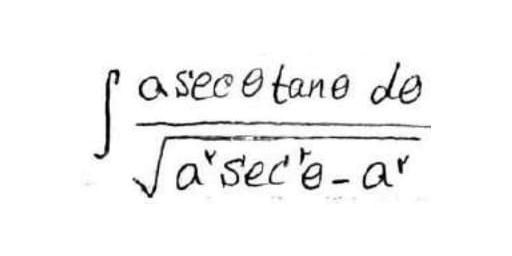 ∫ a sec θ tan θ dθ / √(a² sec² θ - a²)